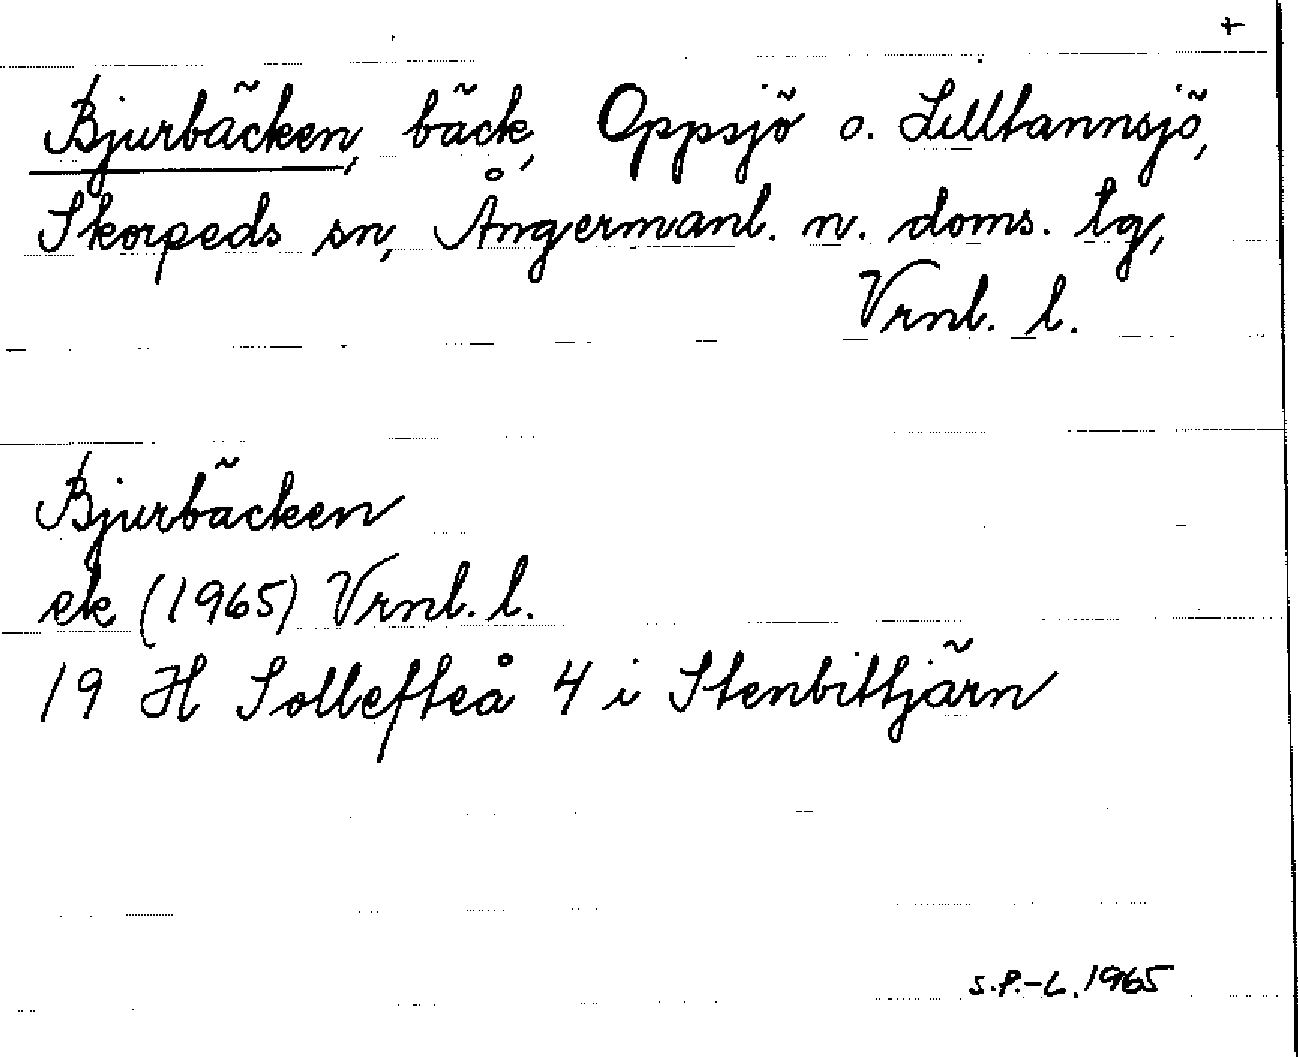 +
Bjurbäcken, bäck, Oppsjö o. Lilltannsjö,
Skorpeds sn, Ångermanl. n. doms. tg,
Vrnl. l.
Bjurbäcken
ek (1965) Vrnl. l.
19 H Sollefteå 4 i Stenbittjärn
S.P.-L. 1965